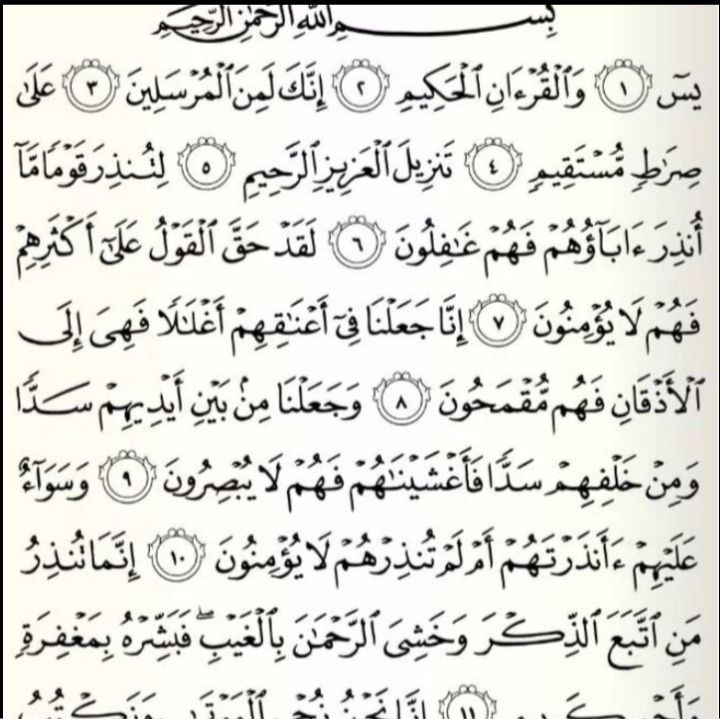 بِسْمِ ٱللَّهِ ٱلرَّحْمَٰنِ ٱلرَّحِيمِ
يسٓ ١ وَٱلْقُرْءَانِ ٱلْحَكِيمِ ٢ إِنَّكَ لَمِنَ ٱلْمُرْسَلِينَ ٣ عَلَىٰ
صِرَٰطٍ مُّسْتَقِيمٍ ٤ تَنزِيلَ ٱلْعَزِيزِ ٱلرَّحِيمِ ٥ لِتُنذِرَ قَوْمًا مَّآ
أُنذِرَ ءَابَآؤُهُمْ فَهُمْ غَٰفِلُونَ ٦ لَقَدْ حَقَّ ٱلْقَوْلُ عَلَىٰٓ أَكْثَرِهِمْ
فَهُمْ لَا يُؤْمِنُونَ ٧ إِنَّا جَعَلْنَا فِىٓ أَعْنَٰقِهِمْ أَغْلَٰلًا فَهِىَ إِلَى
ٱلْأَذْقَانِ فَهُم مُّقْمَحُونَ ٨ وَجَعَلْنَا مِنۢ بَيْنِ أَيْدِيهِمْ سَدًّا
وَمِنْ خَلْفِهِمْ سَدًّا فَأَغْشَيْنَٰهُمْ فَهُمْ لَا يُبْصِرُونَ ٩ وَسَوَآءٌ
عَلَيْهِمْ ءَأَنذَرْتَهُمْ أَمْ لَمْ تُنذِرْهُمْ لَا يُؤْمِنُونَ ١٠ إِنَّمَا تُنذِرُ
مَنِ ٱتَّبَعَ ٱلذِّكْرَ وَخَشِىَ ٱلرَّحْمَٰنَ بِٱلْغَيْبِ ۖ فَبَشِّرْهُ بِمَغْفِرَةٍ
وَأَجْرٍ كَرِيمٍ ١١ إِنَّا نَحْنُ نُحْىِ ٱلْمَوْتَىٰ وَنَكْتُبُ